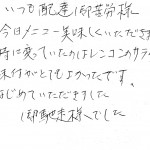 いつも配達御苦労様
今日メニュー美味しくいただき
時に変っていたのはレンコンのサラ
味付がとてもよかったです。
はじめていただきました
御馳走様でした